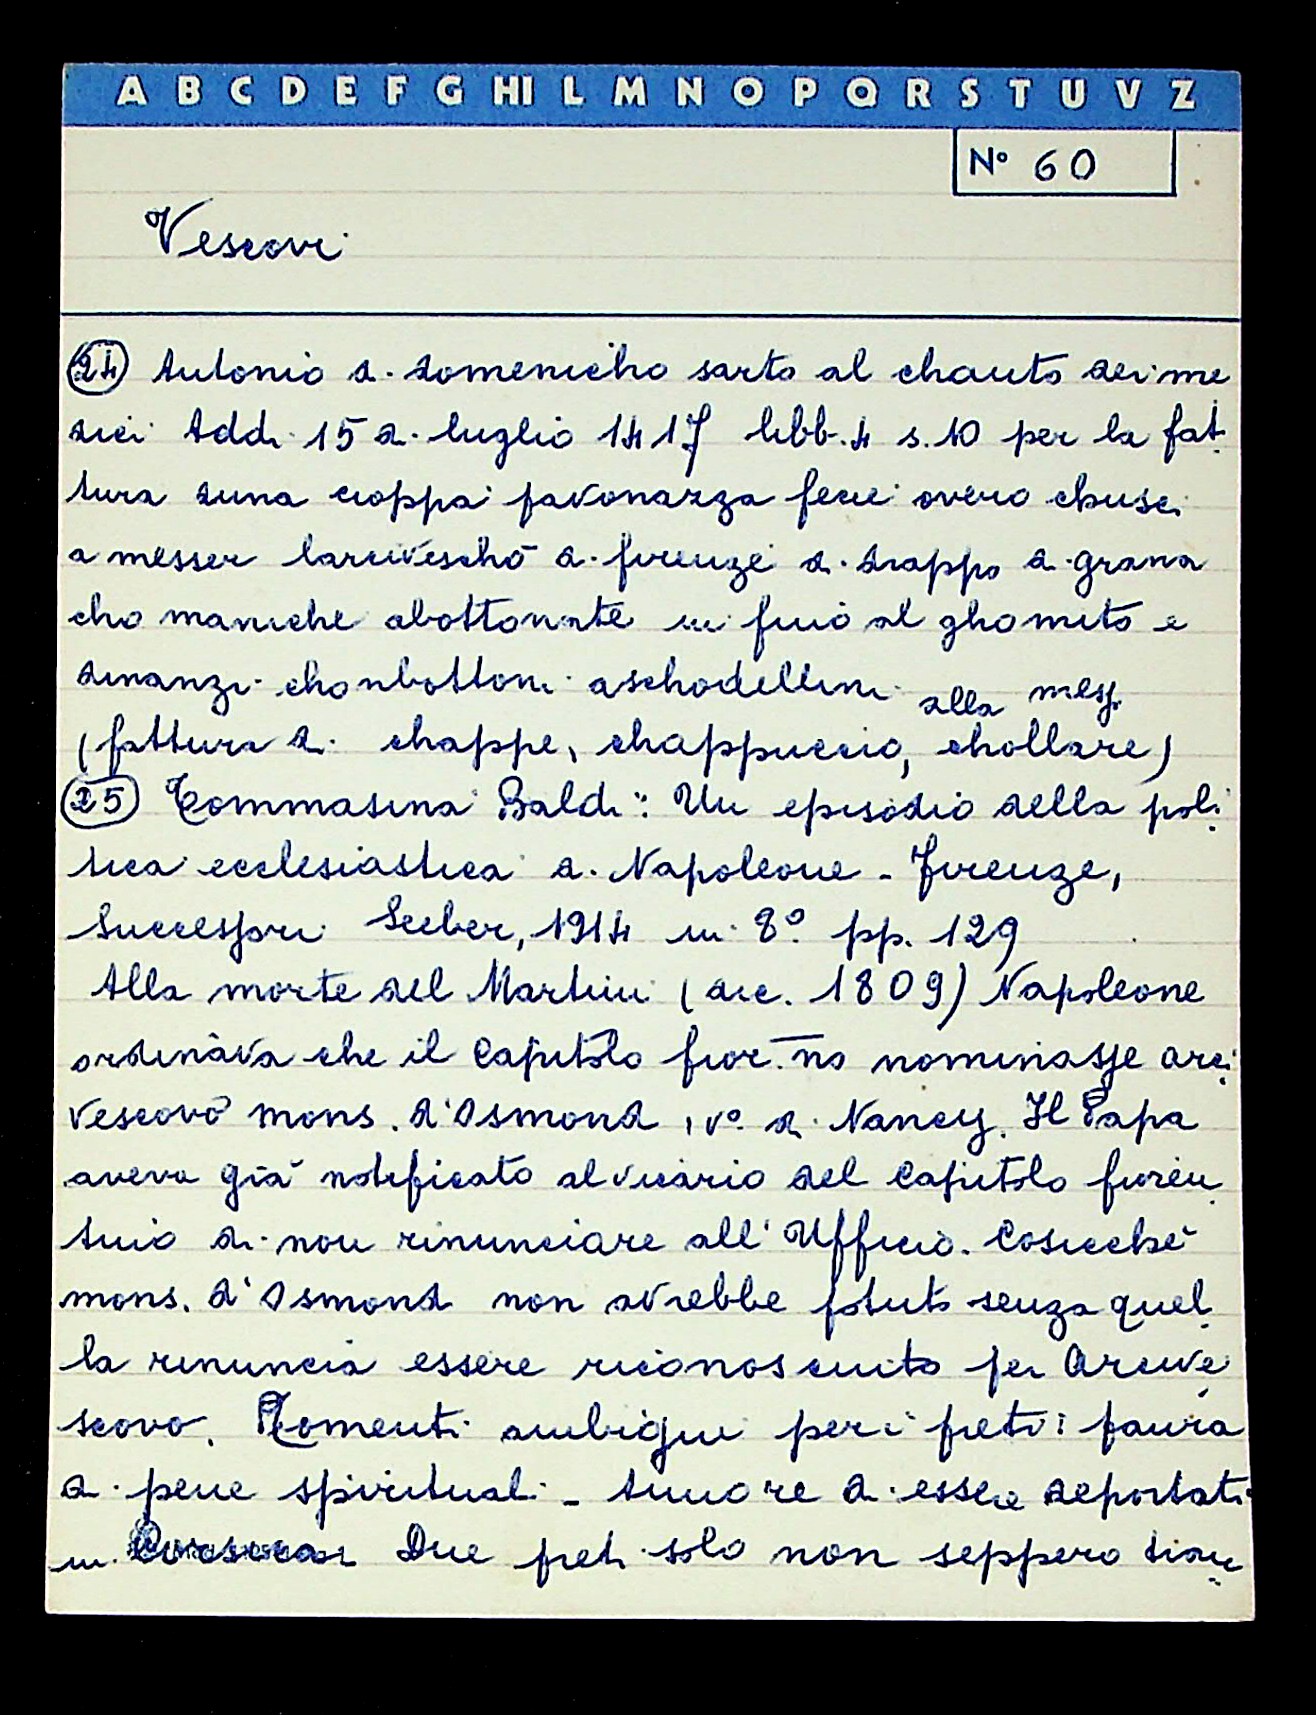 A B C D E F G HI L M N O P Q R S T U V Z
N° 60
Vescovi
24 Antonio di domenicho sarto al chanto dei me
dici Addi 15 di luglio 1417 libb. 4 s. 10 per la fat
tura duna cioppa pavonazza feci overo chusi
a messer larciveschō di firenze di drappo di grana
cho maniche abottonate in fino al ghomito e
dinanzi chonbottoni aschodellini alla mess.
(fattura di chappe, chappuccio, chollare)
25 Tommasina Baldi: Un episodio della poli
tica ecclesiastica di Napoleone - Firenze,
Successori Seeber, 1914 in 8° pp. 129
Alla morte del Martini (dic. 1809) Napoleone
ordinava che il Capitolo fior.no nominasse arci
vescovo mons. d'Osmond, v° di Nancy. Il Papa
aveva già notificato al vicario del Capitolo fioren
tino di non rinunciare all'Ufficio. Cosicché
mons. d'Osmond non avrebbe potuto senza quel
la rinuncia essere riconosciuto per Arcive
scovo. Momenti ambigui per i preti: paura
di pene spirituali - timore di essere deportati
in Corsica. Due preti solo non seppero